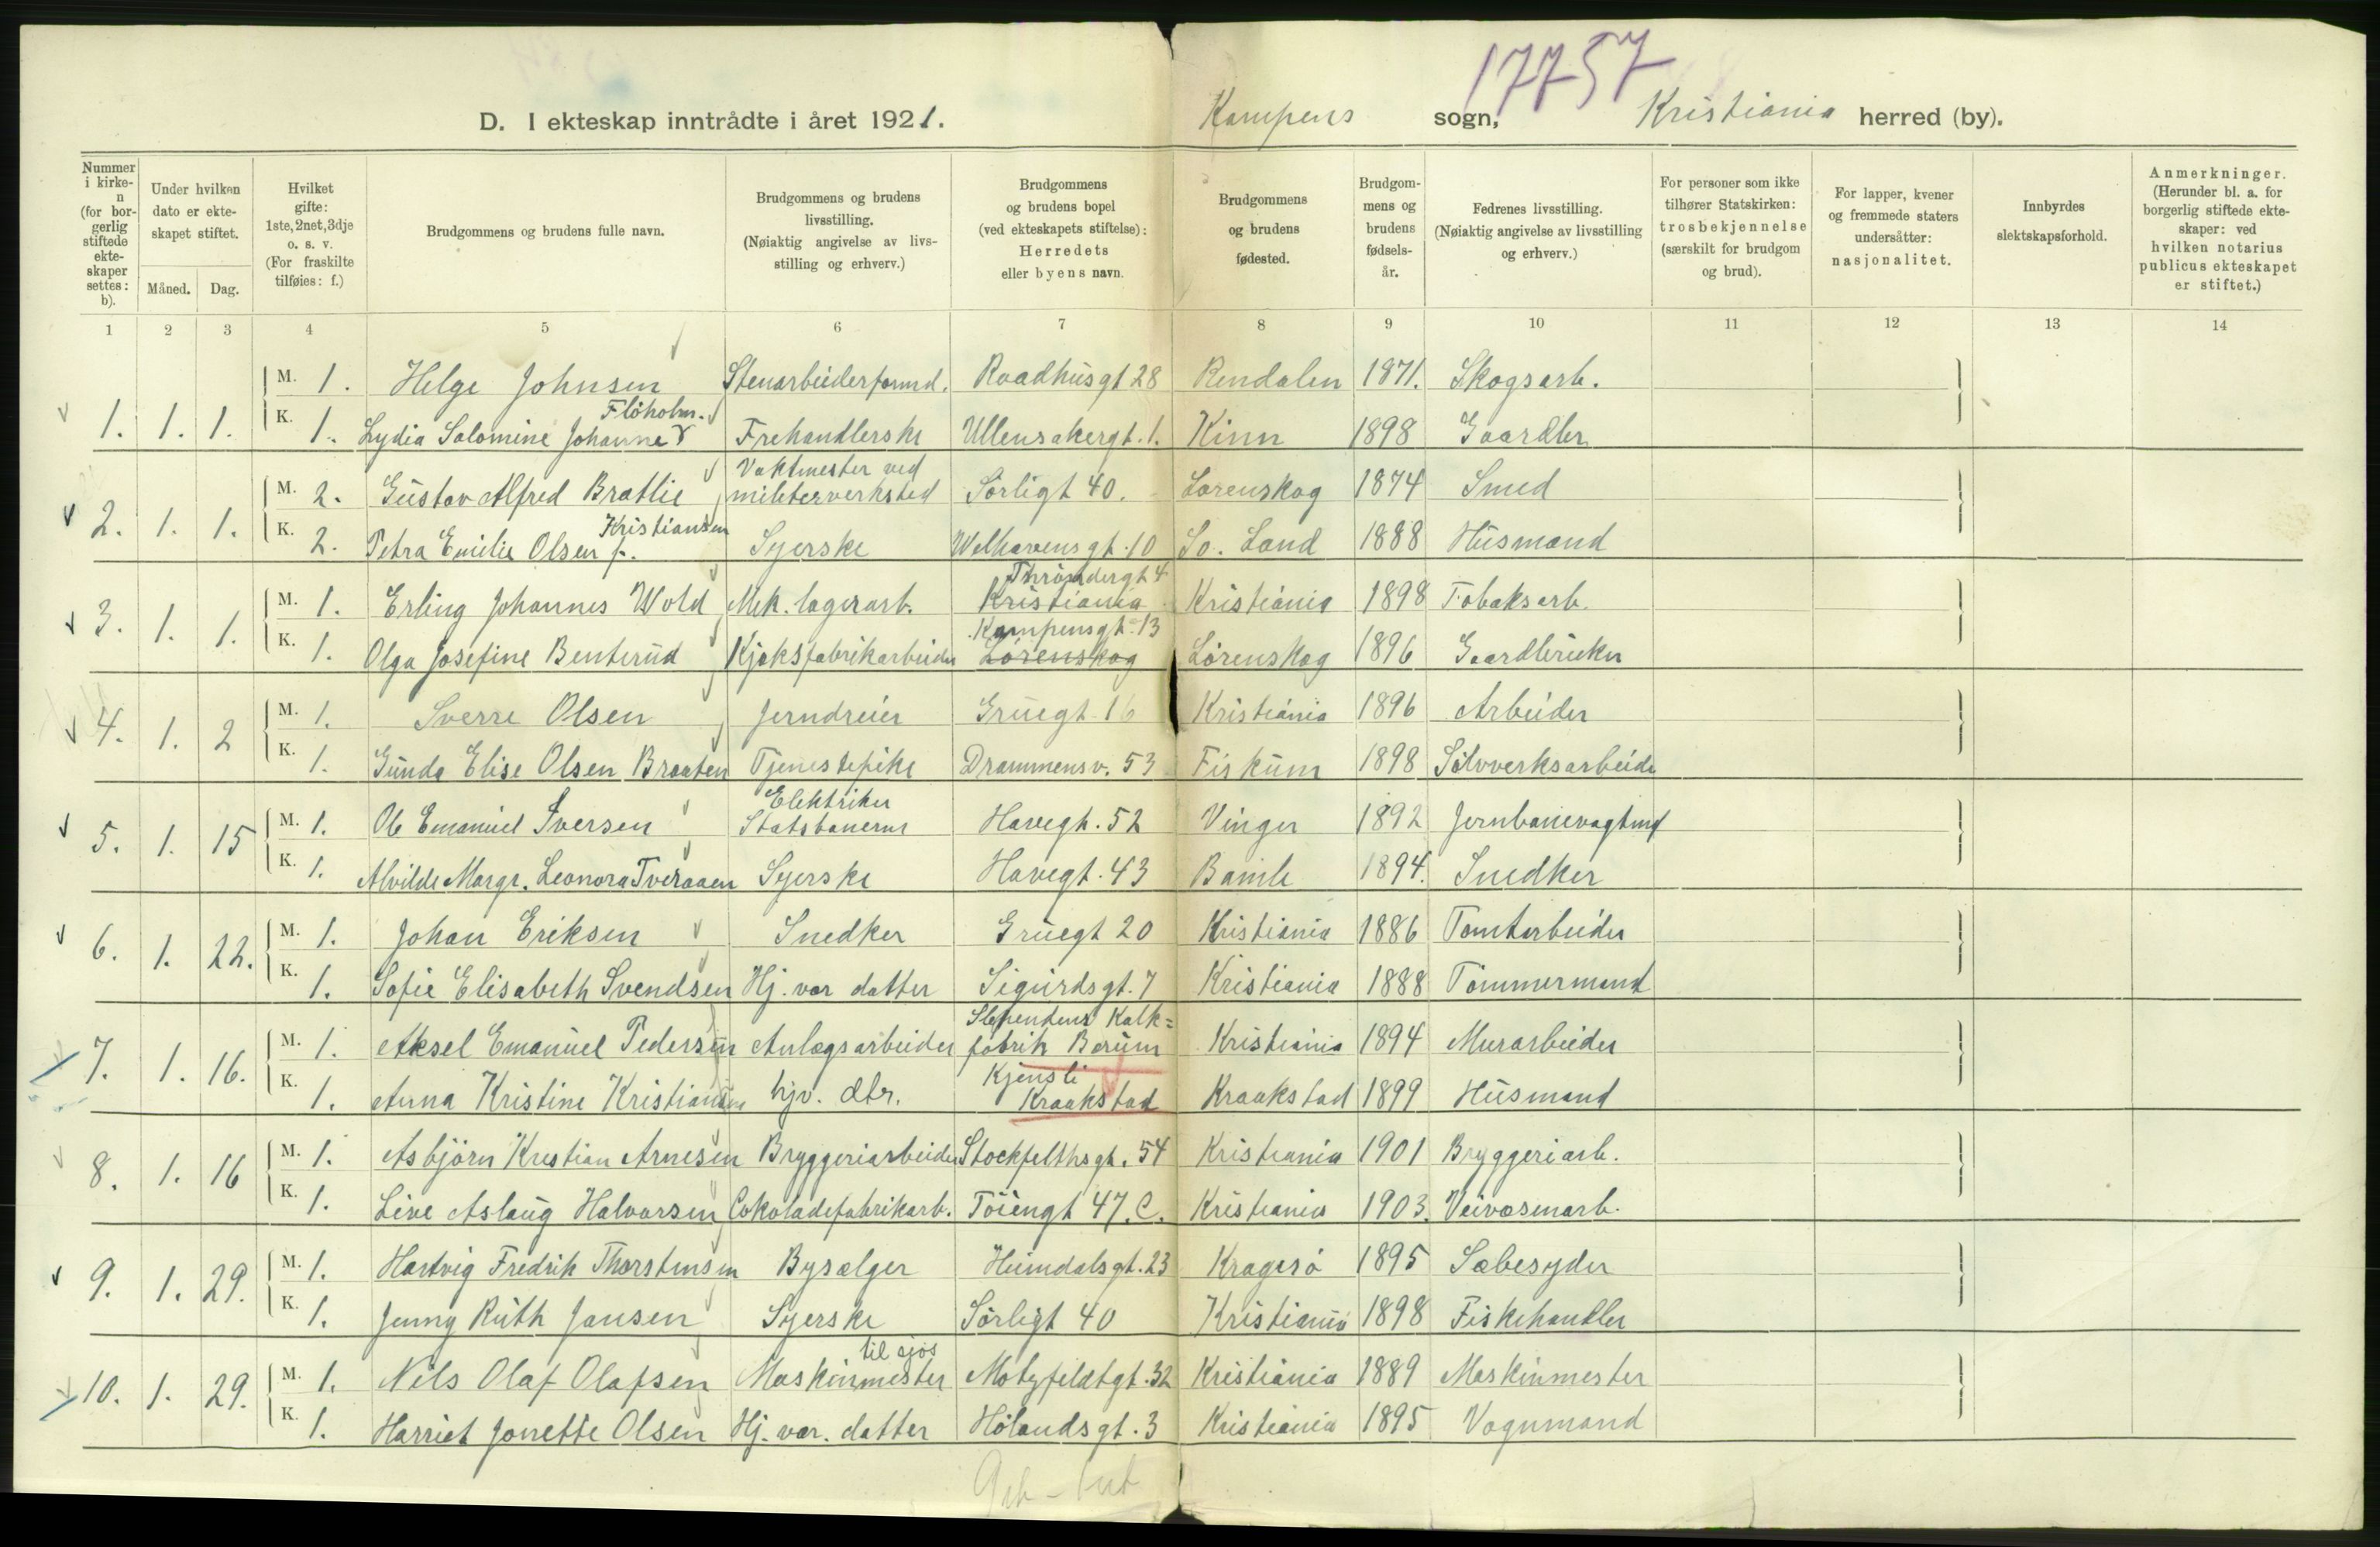 17757
D. I ekteskap inntrådte i året 1921. Kampens sogn, Kristiania herred (by).
Nummer i kirke- n (for bor- gerlig stiftede ekte- skaper settes: b).
Under hvilken dato er ekte- skapet stiftet.
Måned. Dag.
Hvilket gifte: 1ste, 2net, 3dje o. s. v. (For fraskilte tilføies: f.)
Brudgommens og brudens fulle navn.
Brudgommens og brudens livsstilling. (Nøiaktig angivelse av livs- stilling og erhverv.)
Brudgommens og brudens bopel (ved ekteskapets stiftelse): Herredets eller byens navn.
Brudgommens og brudens fødested.
Brudgom- mens og brudens fødsels- år.
Fedrenes livsstilling. (Nøiaktig angivelse av livsstilling og erhverv.)
For personer som ikke tilhører Statskirken: trosbekjennelse (særskilt for brudgom og brud).
For lapper, kvener og fremmede staters undersåtter: nasjonalitet.
Innbyrdes slektskapsforhold.
Anmerkninger. (Herunder bl. a. for borgerlig stiftede ekte- skaper: ved hvilken notarius publicus ekteskapet er stiftet.)
1 2 3 4 5 6 7 8 9 10 11 12 13 14
M. 1. Helge Johnsen Stenarbeiderformd. Raadhusgt 28 Rendalen 1871. Skogsarb.
Flöholm.
1. 1. 1. K. 1. Lydia Salomine Johanne Frehandlerske Ullensakergt. 1. Kinn 1898 Gaardbr.
Vaktmester ved
M. 2. Gustav Alfred Bratlie militerverksted Sörligt 40. Lorenskog 1874 Smed
Kristiansen
2. 1. 1. K. 2. Petra Emilie Olsen f. Syerske Welhavensgt. 10 So. Land 1888 Husmand
Throndergt 4
M. 1. Erling Johannes Wold Mek. lagerarb. Kristiania Kristiania 1898 Tobaksarb.
Kampensgt. 13
3. 1. 1. K. 1. Olga Josefine Benterud Kjeksfabrikarbeider Lörenskog Lörenskog 1896 Gaardbruker
M. 1. Sverre Olsen Jerndreier Gruegt. 16 Kristiania 1896 Arbeider
4. 1. 2 K. 1. Gunda Elise Olsen Braaten Tjenestepike Drammensv. 53 Fiskum 1898 Sölvverksarbeide
Elektriker
M. 1. Ole Emanuel Iversen Statsbanerne Havegt. 52 Vinger 1892 Jernbanevagtmd
5. 1. 15 K. 1. Alvilde Margr. Leonora Tveraaen Syerske Havegt. 43 Bamle 1894. Snedker
M. 1. Johan Eriksen Snedker Gruegt 20 Kristiania 1886 Tomtarbeider
6. 1. 22. K. 1. Sofie Elisabeth Svendsen Hj. vær datter Sigurdsgt. 7 Kristiania 1888 Tömmermand
Slependens Kalk=
M. 1. Aksel Emanuel Pedersen Anlægsarbeider fabrik Bærum Kristiania 1894 Murarbeider
Kjensli
7. 1. 16. K. 1. Anna Kristine Kristiansen hjv. dtr. Kraakstad Kraakstad 1899 Husmand
M. 1. Asbjörn Krestian Arnesen Bryggeriarbeider Stockfelthsgt. 54 Kristiania 1901 Bryggeriarb.
8. 1. 16 K. 1. Live Aslaug Halvorsen Cokoladefabrikarb. Töiengt 47. C. Kristiania 1903. Veivæsenarb.
M. 1. Hartvig Fredrik Thorstensen Bysælger Heimdalsgt. 23 Kragerö 1895 Sæbesyder
9. 1. 29. K. 1. Jenny Ruth Jansen Syerske Sörligt 40 Kristiania 1898 Fiskehandler
til sjøs
M. 1. Nils Olaf Olafsen Maskinmester Motzfeldtgt. 32 Kristiania 1889 Maskinmester
10. 1. 29. K. 1. Harriet Jonette Olsen Hj. vær. datter Hölandsgt. 3 Kristiania 1895 Vognmand